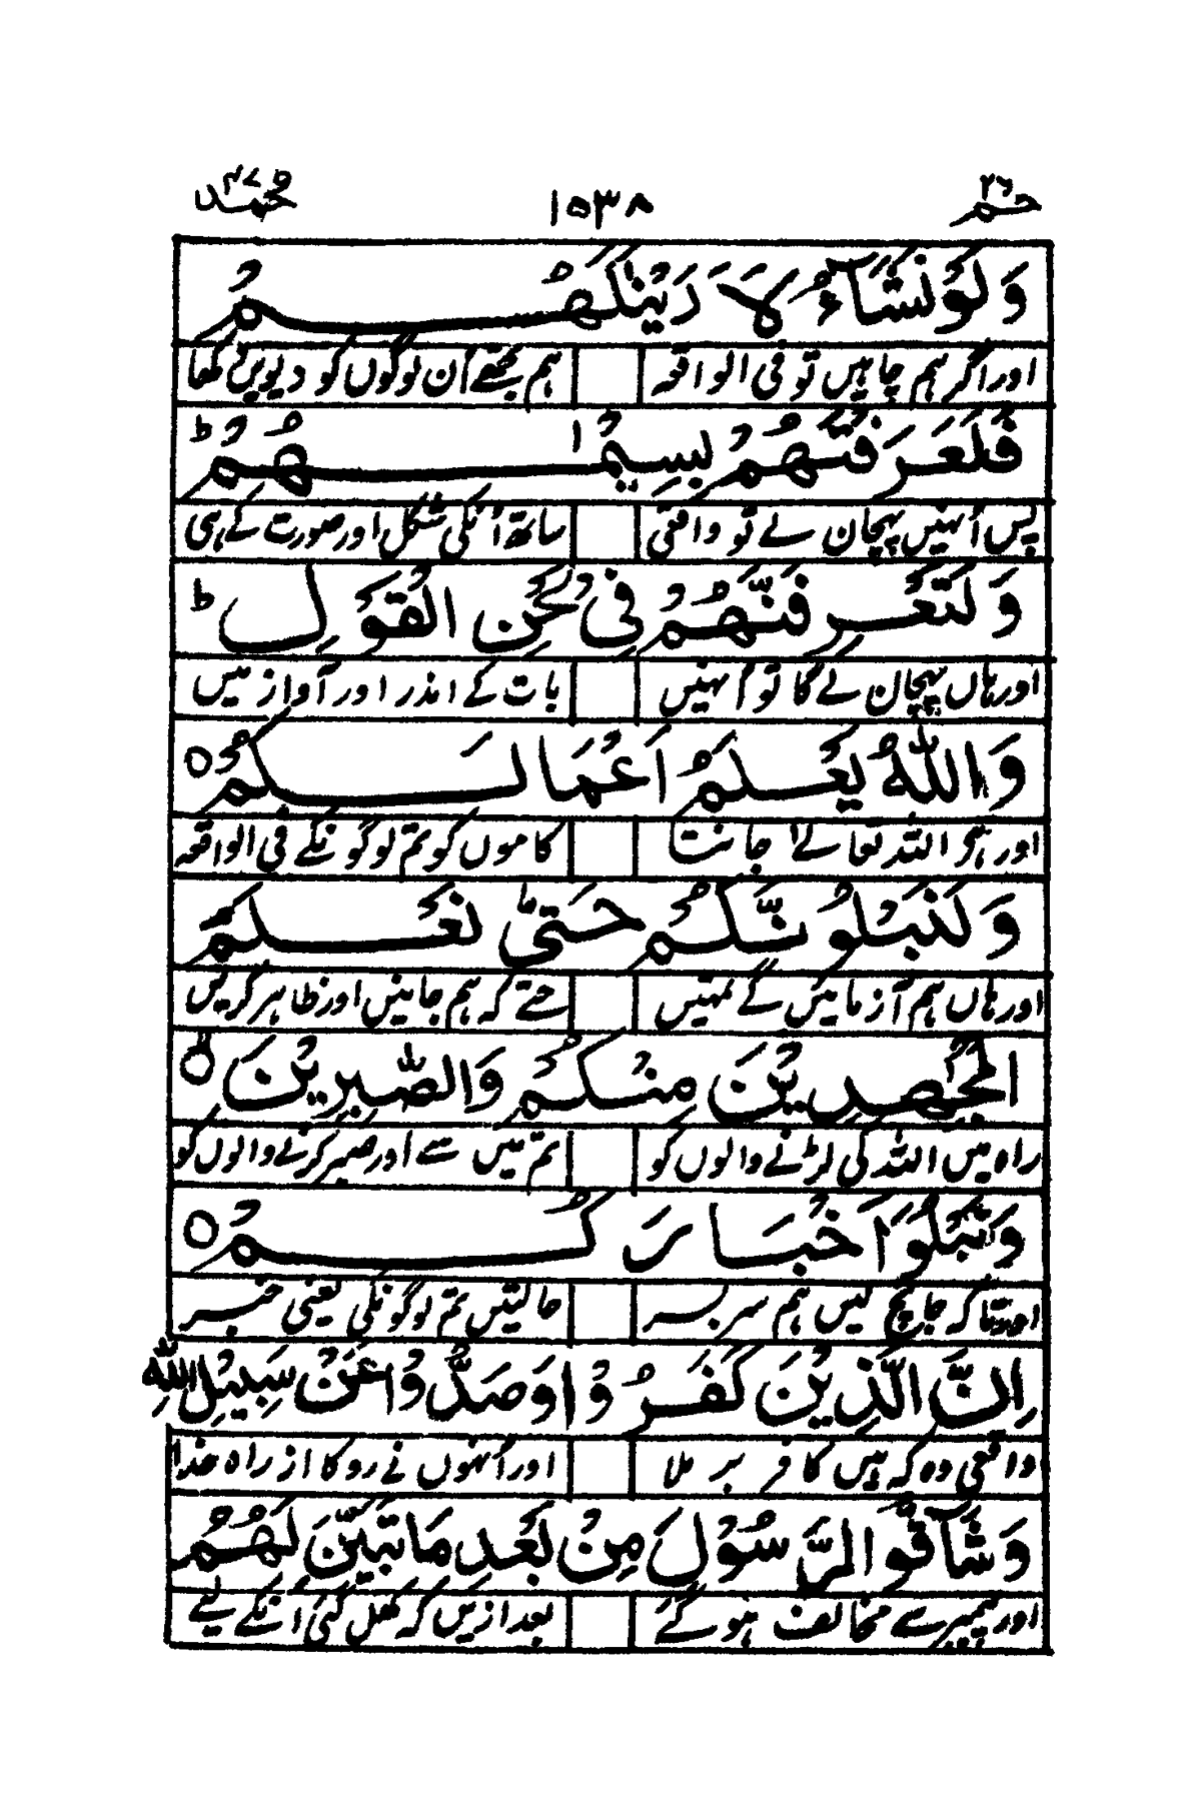 حٰمۤ ٢٦ ١٥٣٨ محمد ٤٧
وَلَوْ نَشَآءُ لَاَرَيْنٰكَهُمْ
اور اگر ہم چاہیں تو فی الواقعہ ہم تجھے اُن لوگوں کو دیویں دکھا
فَلَعَرَفْتَهُمْ بِسِيْمٰهُمْ ط
پس اُنہیں پہچان لے تو واقعی ساتھ اُنکی شکل اور صورت کے ہی
وَلَتَعْرِفَنَّهُمْ فِیْ لَحْنِ الْقَوْلِ ط
اور ہاں پہچان لے گا تو اُنہیں بات کے اندر اور آواز میں
وَاللّٰهُ يَعْلَمُ اَعْمَالَكُمْ ○
اور ہے اللہ تعالےٰ جانتا کاموں کو تم لوگونکے فی الواقعہ
وَلَنَبْلُوَنَّكُمْ حَتّٰی نَعْلَمَ
اور ہاں ہم آزمائیں گے تمہیں حتے کہ ہم جانیں اور ظاہر کریں
الْمُجٰهِدِيْنَ مِنْكُمْ وَالصّٰبِرِيْنَ ○ لا
راہ میں اللہ کی لڑنے والوں کو تم میں سے اور صبر کرنے والوں کو
وَنَبْلُوَا۟ اَخْبَارَكُمْ ○
اور تا کہ جانچ لیں ہم سربسر حالتیں تم لوگونکی یعنی خبر
اِنَّ الَّذِيْنَ كَفَرُوْا وَصَدُّوْا عَنْ سَبِيْلِ اللّٰهِ
واقعی وہ کہ ہیں کافر بر ملا اور اُنہوں نے روکا از راہ خدا
وَشَآقُّوا الرَّسُوْلَ مِنْۢ بَعْدِ مَا تَبَيَّنَ لَهُمُ
اور پیمبر سے مخالف ہو گئے بعد ازیں کہ کھل گئی اُنکے لیے